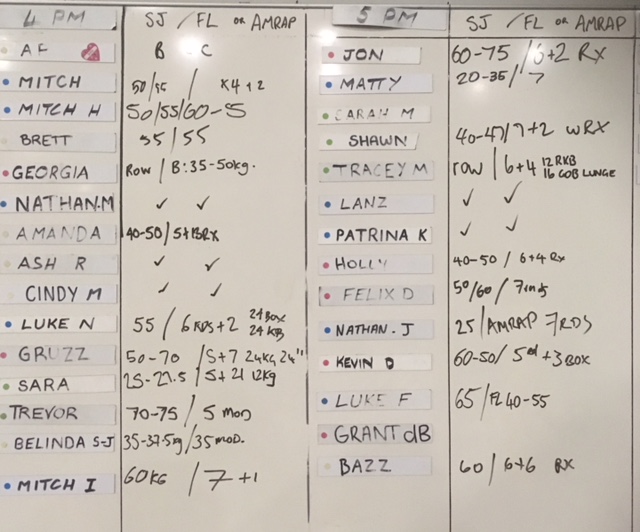 4 PM SJ / FL OR AMRAP
AF B C
MITCH 50/55 / X4+2
MITCH H 50/55/60-5
BRETT 55/55
GEORGIA ROW / B:35-50kg.
NATHAN.M ✓ ✓
AMANDA 40-50/5+13RX
ASH R ✓ ✓
CINDY M ✓ ✓
LUKE N 55 / 6RDS+2 24BOX 24KB
GRUZZ 50-70 / 5+7 24kg 24"
SARA 25-27.5 / 5+21 12kg
TREVOR 70-75 / 5 MOD
BELINDA S-J 35-37.5kg/35 MOD.
MITCH I 60KG / 7+1
5 PM SJ / FL OR AMRAP
JON 60-75 / 6+2 RX
MATTY 20-35/7
SARAH M
SHAWN 40-47/7+2 WRX
TRACEY M row / 6+4 12RKB 16 GOB LUNGE
LANZ ✓ ✓
PATRINA K ✓ ✓
HOLLY 40-50 / 6+4 RX
FELIX D 50/60 /
NATHAN.J 25/AMRAP 7RDS
KEVIN D 60-50/ +3 BOX
LUKE F 65/FL 40-55
GRANT dB
BAZZ 60 / 6+6 RX